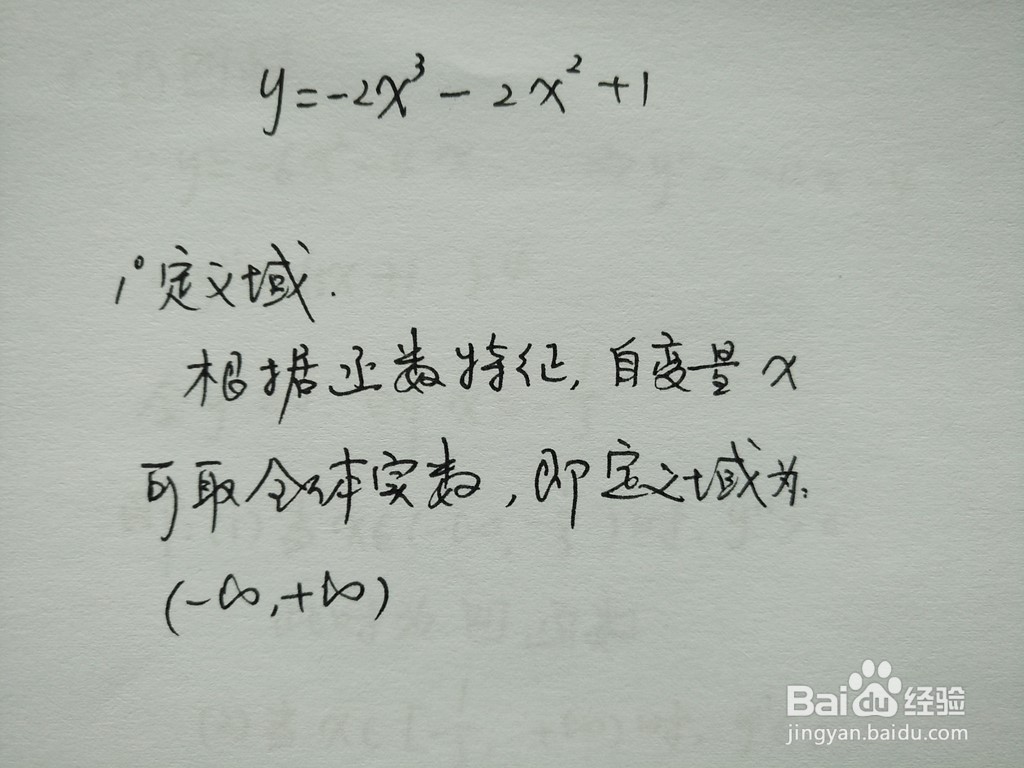 y=-2x³-2x²+1
1°定义域.
根据函数特征,自变量x
可取全体实数,即定义域为:
(-∞,+∞)
Bai 经验
jingyan.baidu.com